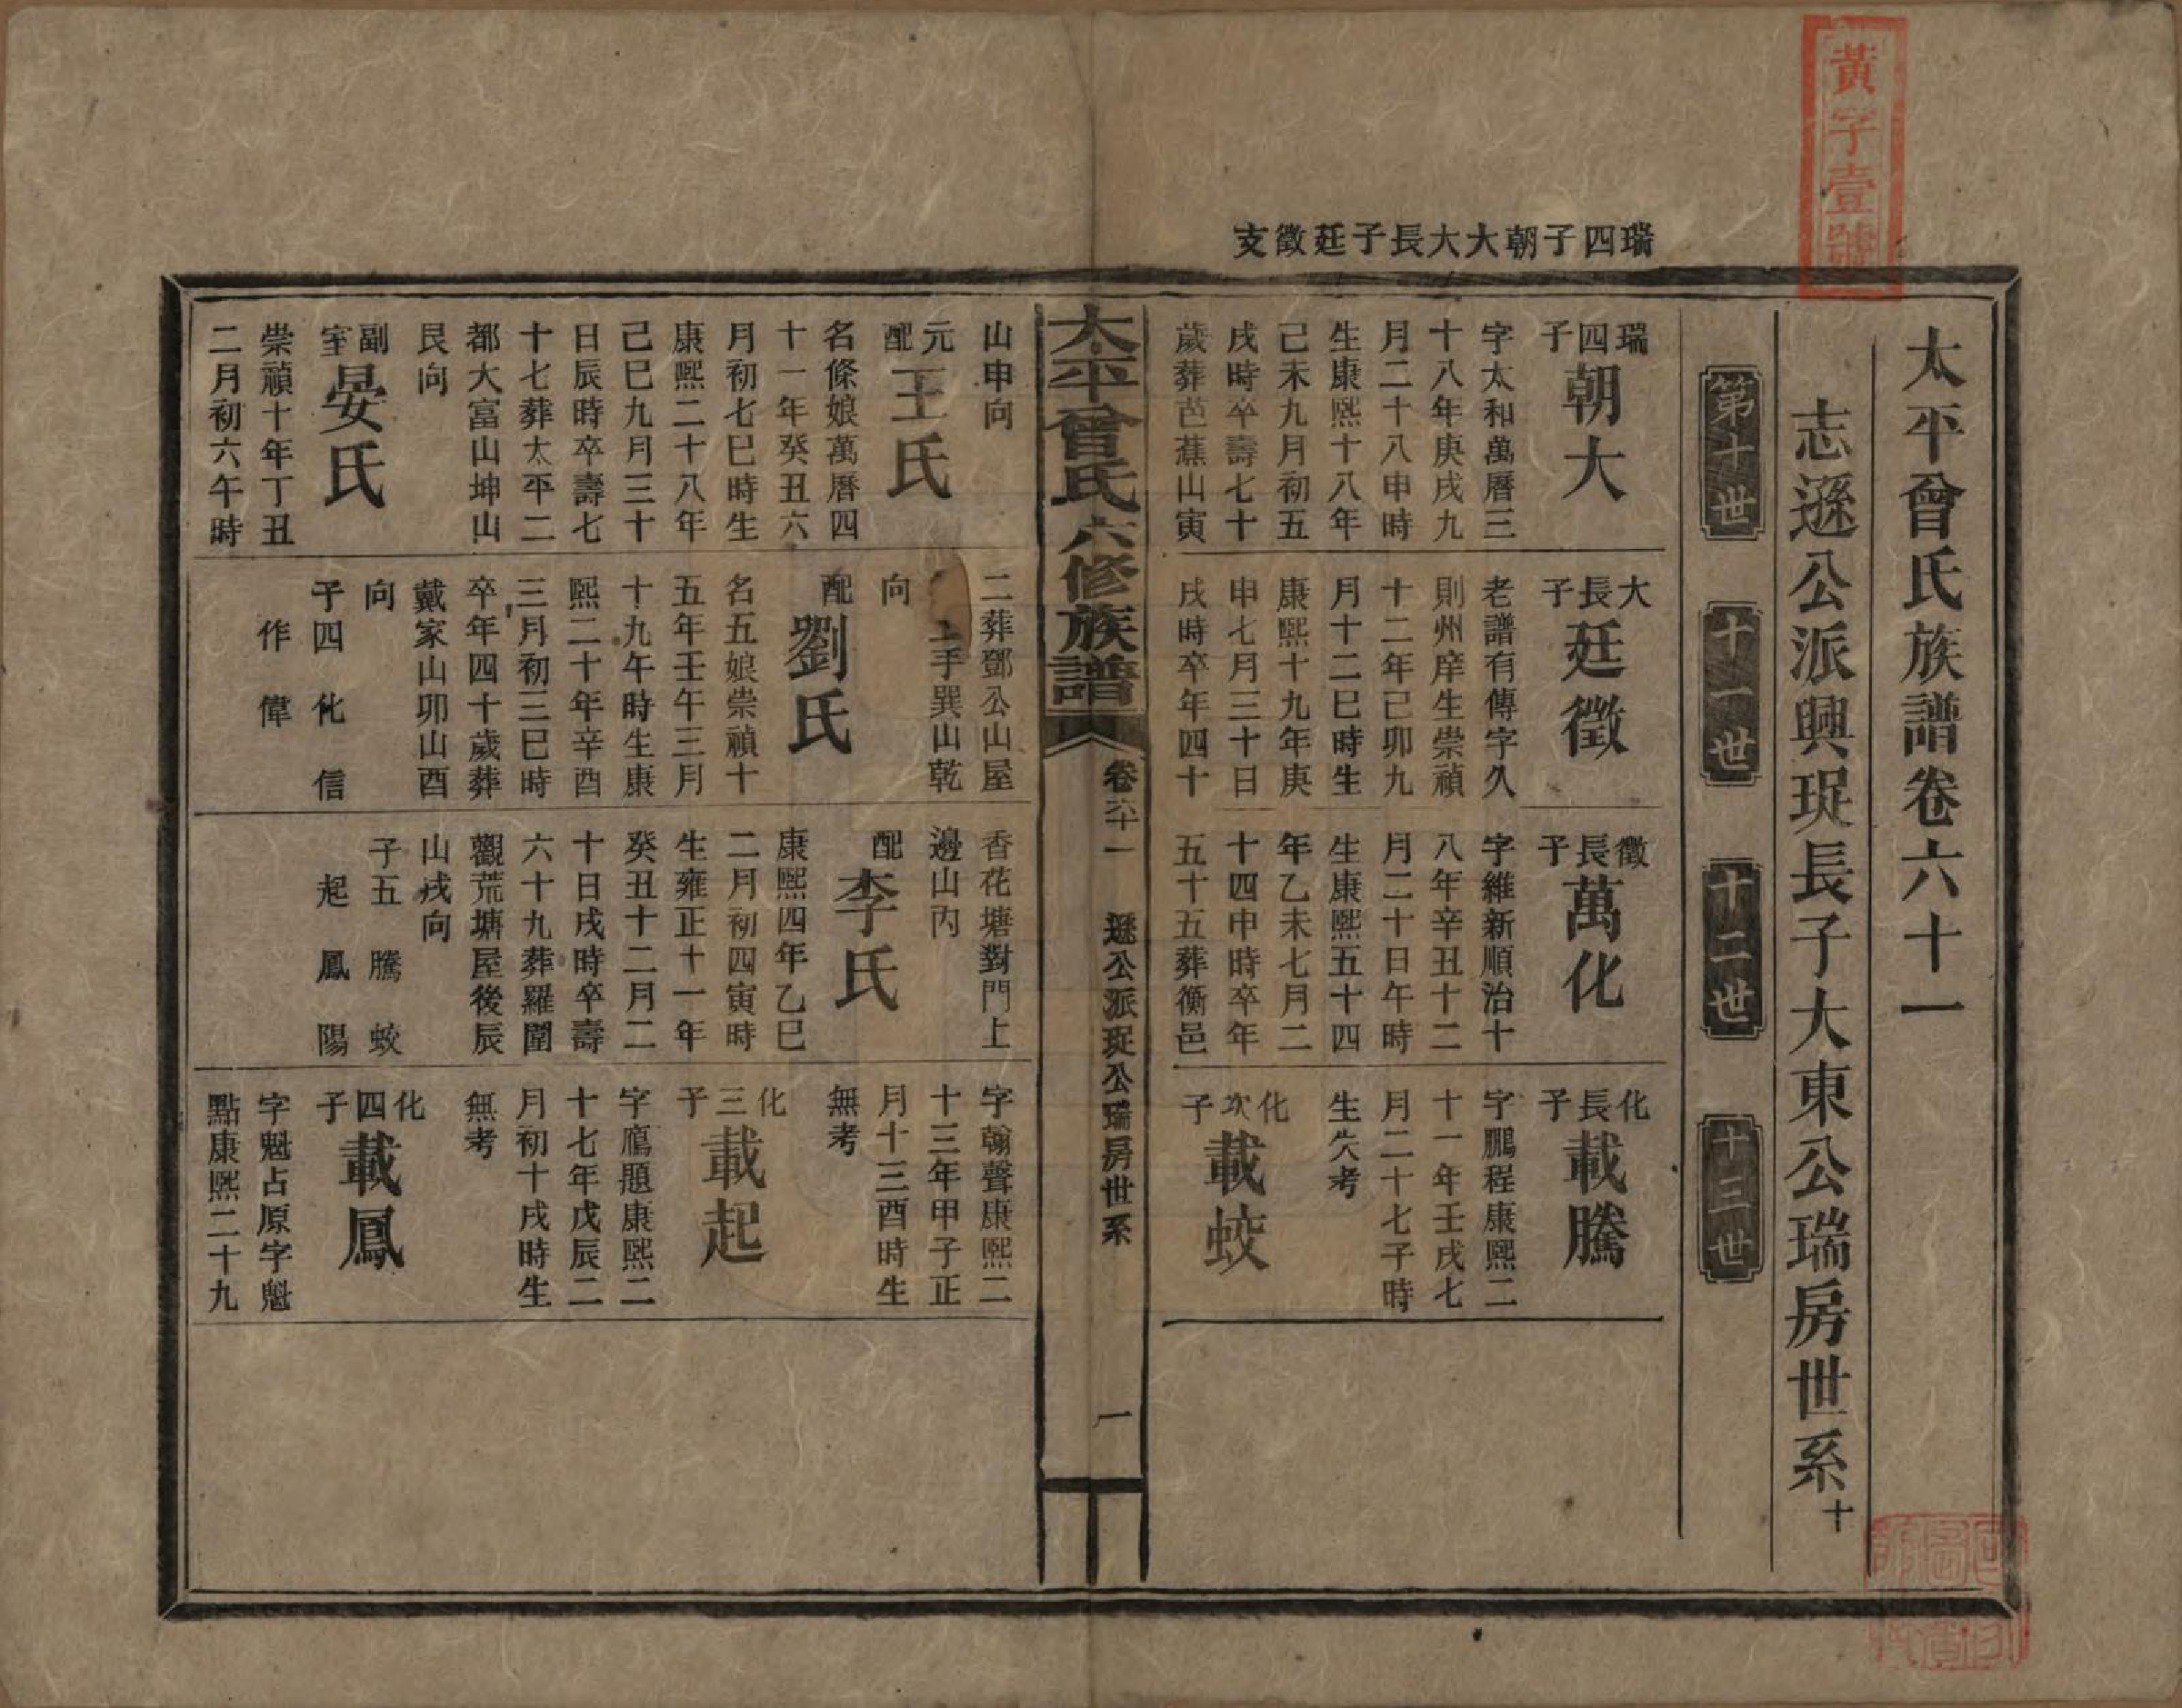 黃字壹號
太平曾氏族譜卷六十一
志遜公派興珽長子大東公瑞房世系十
第十世
十一世
十二世
十三世
瑞四子朝大大長子廷徵支
瑞四子朝大
字太和萬曆三
十八年庚戌九
月二十八申時
生康熙十八年
己未九月初五
戌時卒壽七十
歲葬芭蕉山寅
山申向
元配王氏
名條娘萬曆四
十一年癸丑六
月初七巳時生
康熙二十八年
己巳九月三十
日辰時卒壽七
十七葬太平二
都大富山坤山
艮向
副室晏氏
崇禎十年丁丑
二月初六午時
大長子廷徵
老譜有傳字久
則州庠生崇禎
十二年己卯九
月十二巳時生
康熙十九年庚
申七月三十日
戌時卒年四十
二葬鄧公山屋
上手巽山乾
向
配劉氏
名五娘崇禎十
五年壬午三月
十九午時生康
熙二十年辛酉
三月初三巳時
卒年四十歲葬
戴家山卯山酉
向
子四 化 信
作 偉
徵長子萬化
字維新順治十
八年辛丑十二
月二十日午時
生康熙五十四
年乙未七月二
十四申時卒年
五十五葬衡邑
香花塘對門上
邊山內
配李氏
康熙四年乙巳
二月初四寅時
生雍正十一年
癸丑十二月二
十日戌時卒壽
六十九葬羅圍
觀荒塘屋後辰
山戌向
子五 騰 蛟
起 鳳 陽
化長子載騰
字鵬程康熙二
十一年壬戌七
月二十七子時
生失考
化次子載蛟
字翰聲康熙二
十三年甲子正
月十三酉時生
無考
化三子載起
字鷹題康熙二
十七年戊辰二
月初十戌時生
無考
化四子載鳳
字魁占原字魁
點康熙二十九
太平曾氏六修族譜
卷六十一
遜公派珽公瑞房世系
一